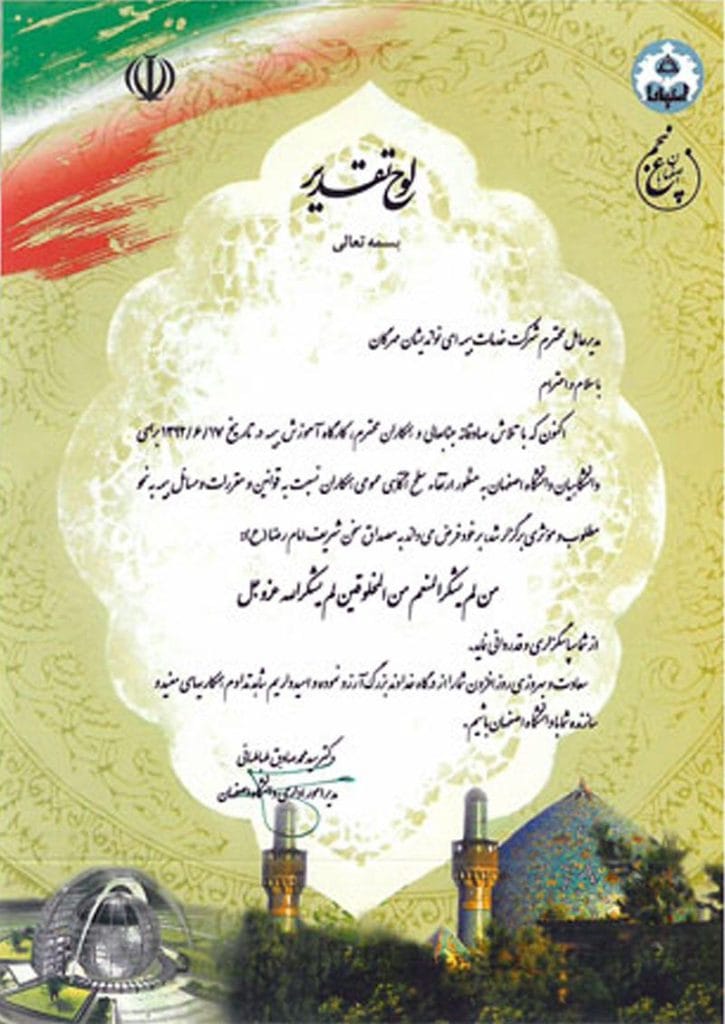 لوح تقدیر
بسمه تعالی
مدیرعامل محترم شرکت خدمات بیمه ای نواندیشان مهرگان
با سلام و احترام
اکنون که با تلاش صادقانه جنابعالی و همکاران محترم، کارگاه آموزش بیمه در تاریخ ۱۳۹۲/۶/۱۷ برای
دانشگاهیان دانشگاه اصفهان به منظور ارتقاء سطح آگاهی عمومی همکاران نسبت به قوانین و مقررات و مسائل بیمه به نحو
مطلوب و موثری برگزار شد، بر خود فرض می داند به مصداق سخن شریف امام رضا (ع):
من لم یشکر المنعم من المخلوقین لم یشکر الله عزوجل
از شما سپاسگزاری و قدردانی نماید.
سعادت و بهروزی روزافزون شما را از درگاه خداوند بزرگ آرزو نموده و امیدواریم شاهد تداوم همکاریهای مفید و
سازنده شما با دانشگاه اصفهان باشیم.
دکتر سید محمد صادق طباطبائی
مدیر امور اداری دانشگاه اصفهان